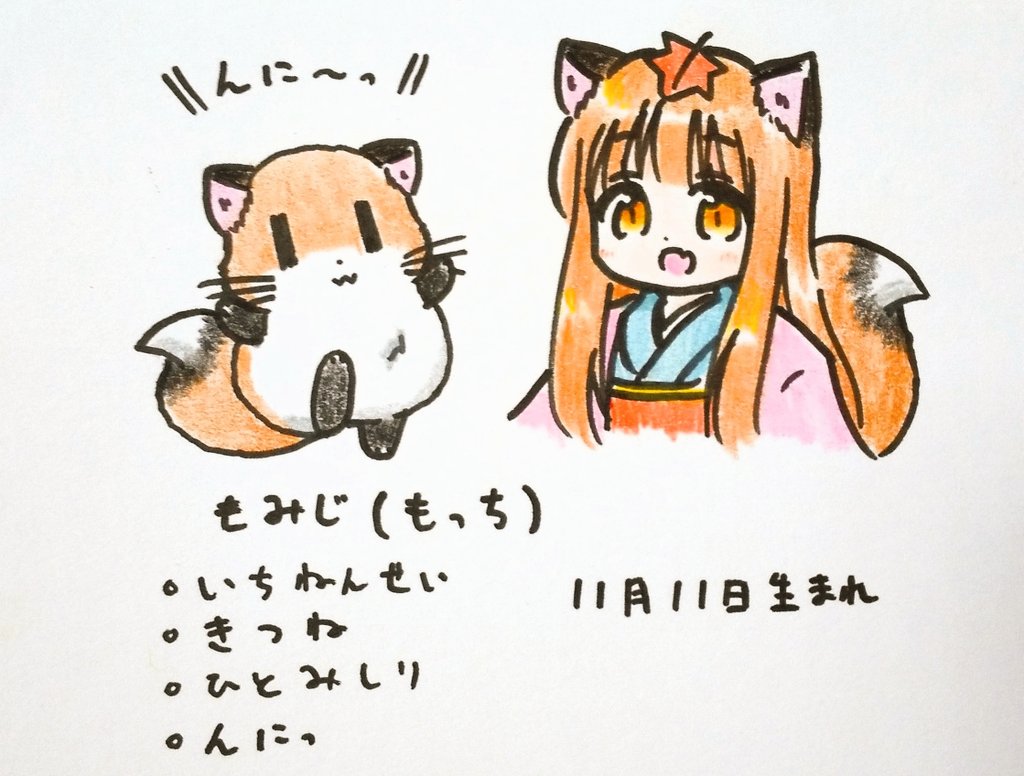 んに〜っ
もみじ(もっち)
いちねんせい
きつね
ひとみしり
んにっ
11月11日生まれ